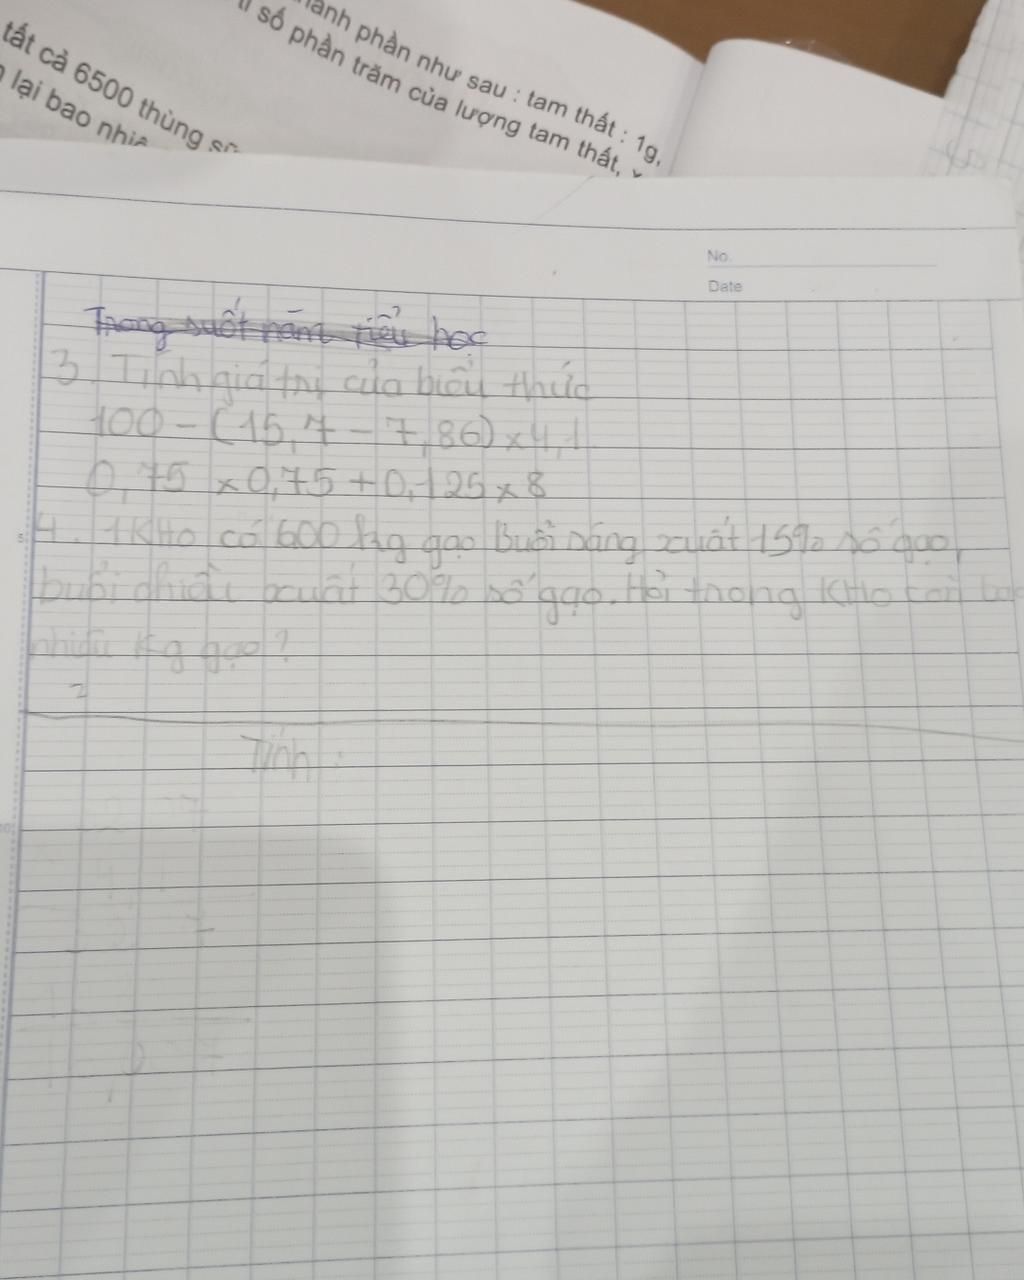 hành phần như sau : tam thất : 1g,
số phần trăm của lượng tam thất,
tất cả 6500 thùng
lại bao
No.
Date
Trong suốt năm tiểu học
3. Tính giá trị của biểu thức
100 - (15,7 - 7,86) x 4,1
0,75 x 0,75 + 0,125 x 8
4. 1 KHo có 600 kg gạo Buổi sáng xuất 15% số gạo,
buổi chiều xuất 30% số gạo. Hỏi trong KHo còn bao
nhiêu Kg gạo?
Tính :